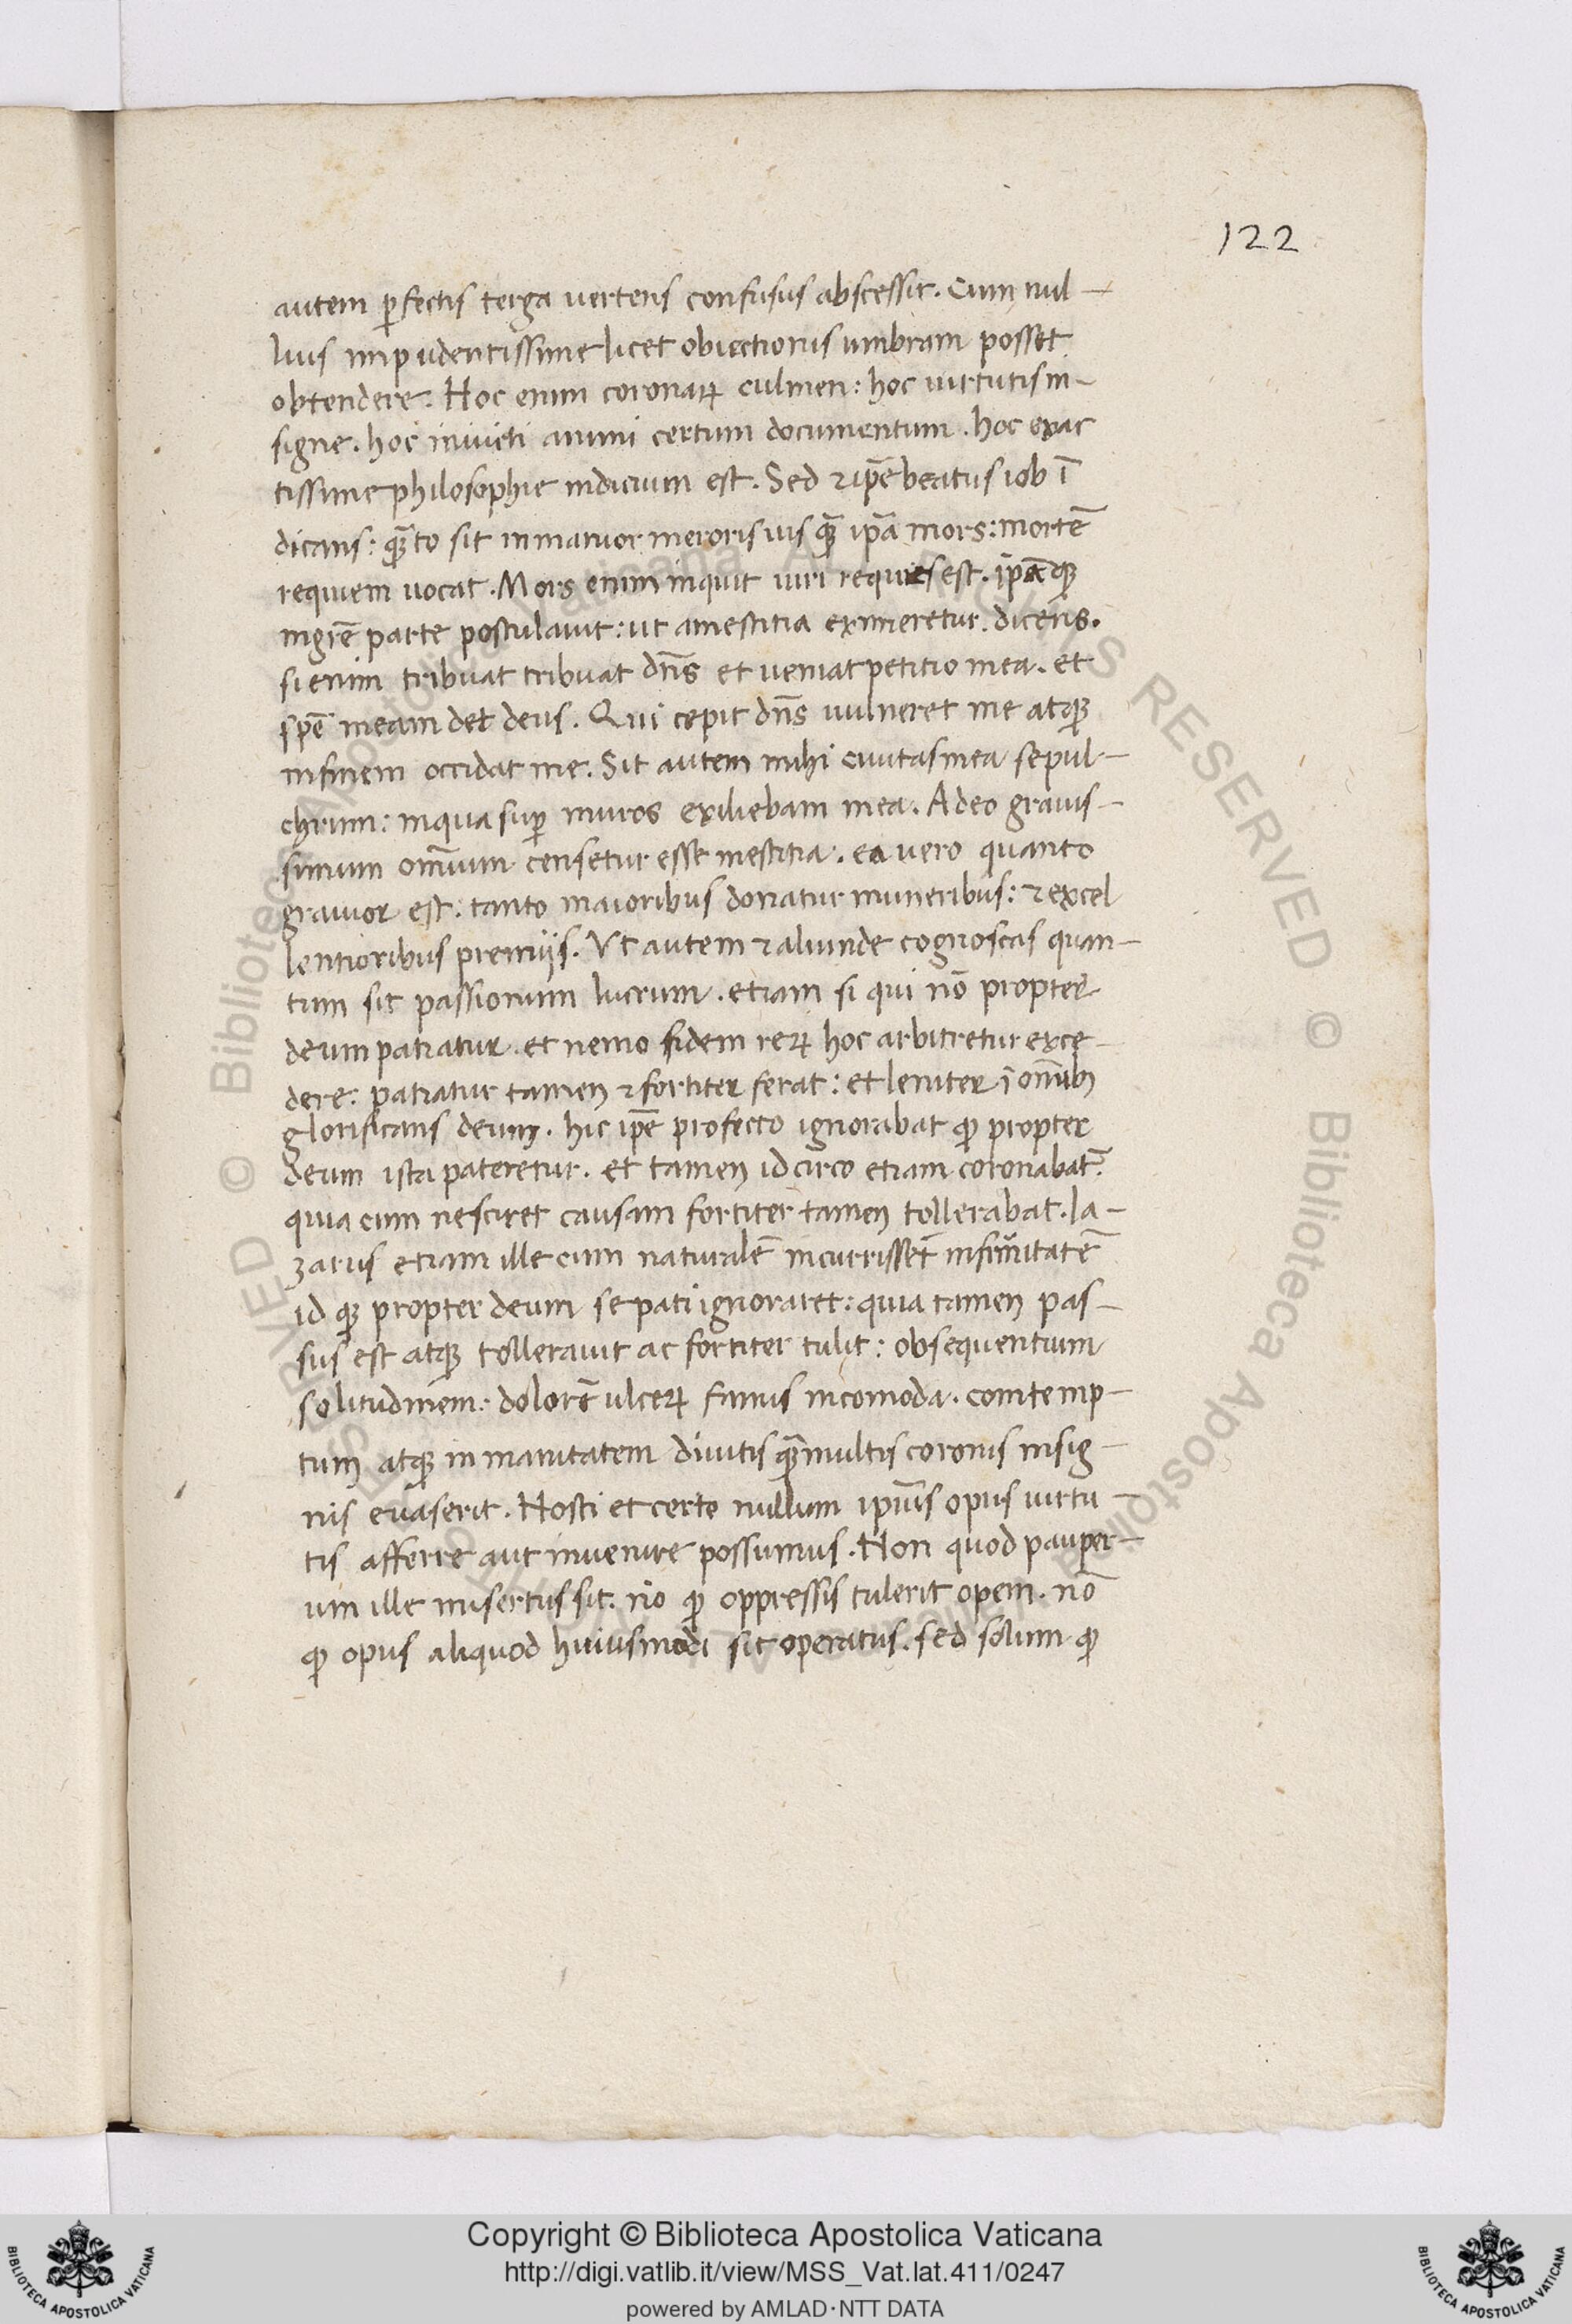 122
autem ꝑfectis terga uertens confusus abscessit. Cum nul-
lius impudentissime licet obiectionis umbram posset
obtendere. Hoc enim coronaꝝ culmen: hoc uirtutis in-
signe. hoc inuicti animi certum documentum. hoc exac
tissime philosophie indicium est. Sed ⁊ ip̄e beatus iob ī
dicans: quāto sit inmanior meroris uis quā ip̄a mors: mortē
requiem uocat. Mors enim inquit uiri requies est. ip̄aqꝫ
ingrē parte postulauit: ut a mestitia eximeretur. dicens.
si enim tribuat tribuat dn̄s et ueniat petitio mea. et
spē meam det deus. Qui cepit dn̄s uulneret me atqꝫ
in finem occidat me. Sit autem mihi ciuitas mea sepul-
chrum: in qua suꝑ muros exiliebam mea. Adeo grauis-
simum omīum censetur esse mestitia. ea uero quanto
grauior est: tanto maioribus donatur muneribus: ⁊ excel
lentioribus premiijs. Vt autem ⁊ aliunde cognoscas quan-
tum sit passionum lucrum. etiam si qui nō propter
deum patiatur. et nemo fidem reꝝ hoc arbitretur exce-
dere: patiatur tamen ⁊ fortiter ferat: et leniter ī omībꝫ
glorificans deum. hic ip̄e profecto ignorabat ꝙ propter
deum ista pateretur. et tamen idcirco etiam coronabat᷑.
quia cum nesciret causam fortiter tamen tollerabat. la-
zarus etiam ille cum naturalē incurrisset infirmitatē
id qꝫ propter deum se pati ignoraret: quia tamen pas-
sus est atqꝫ tollerauit ac fortiter tulit: obsequentium
solitudinem: dolorē ulceꝝ famis incomoda. contemp-
tum atqꝫ inmanitatem diuitis quā multis coronis insig-
nis euaserit. Nosti et certe nullum ipīus opus uirtu-
tis afferre aut inuenire possumus. Non quod pauper-
um ille misertus sit. nō ꝙ oppressis tulerit opem. nō
ꝙ opus aliquod huiusmodi sit operatus. sed solum ꝙ
Copyright © Biblioteca Apostolica Vaticana
http://digi.vatlib.it/view/MSS_Vat.lat.411/0247
powered by AMLAD·NTT DATA